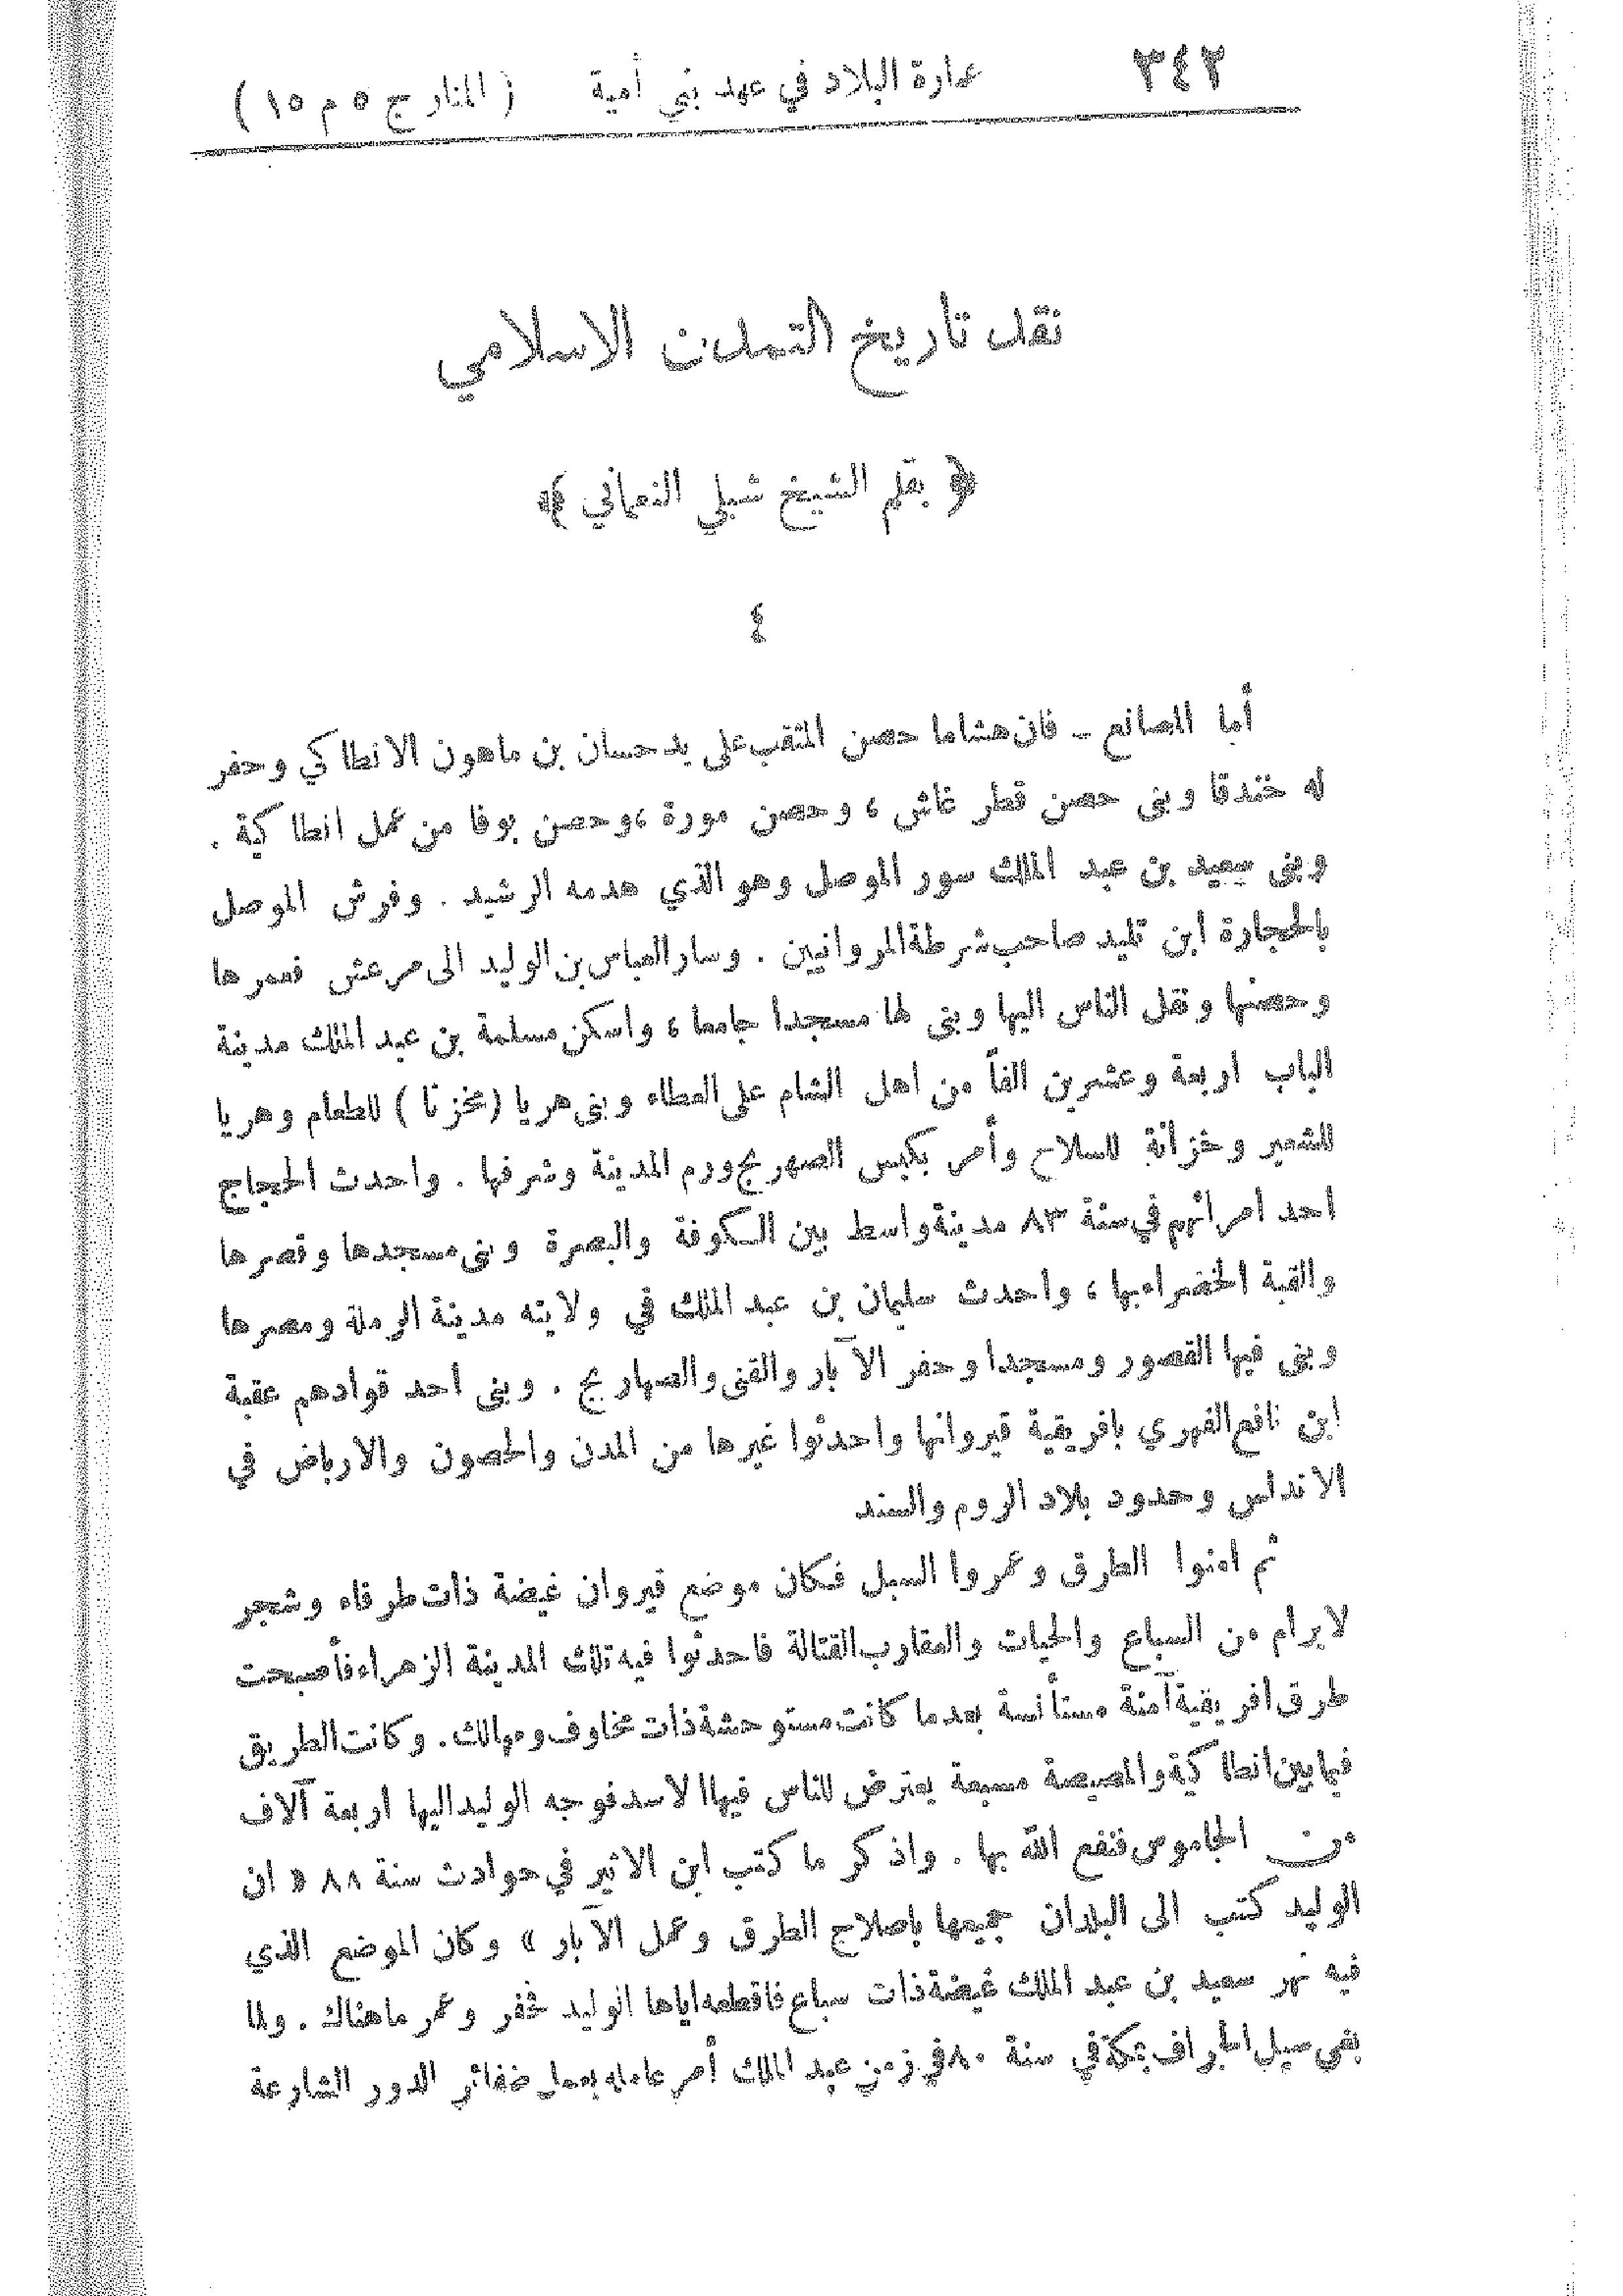 ٣٤٢ عمارة البلاد في عهد بني أمية ( المنار ج ٥ م ١٥ )
نقد تاريخ التمدن الاسلامي
﴿ بقلم الشيخ شبلي النعماني ﴾
٤
أما المصانع ــ فان هشاما حصن المثقب على يد حسان بن ماهون الانطاكي وحفر
له خندقا وبنى حصن قطر غاش ، وحصن مورة ، وحصن بوقا من عمل انطاكية .
وبنى سعيد بن عبد الملك سور الموصل وهو الذي هدمه الرشيد . وفرش الموصل
بالحجارة ابن تليد صاحب شرطة المروانيين . وسار العباس بن الوليد الى مرعش فعمرها
وحصنها ونقل الناس اليها وبنى لها مسجدا جامعا ، واسكن مسلمة بن عبد الملك مدينة
الباب اربعة وعشرين الفاً من اهل الشام على العطاء وبنى هريا (مخزنا ) للطعام وهريا
للشعير وخزانة للسلاح وأمر بكبس الصهريج ورم المدينة وشرفها . واحدث الحجاج
احد امرائهم في سنة ٨٣ مدينة واسط بين الكوفة والبصرة وبنى مسجدها وقصرها
والقبة الخضراء بها ، واحدث سليمان بن عبد الملك في ولايته مدينة الرملة ومصرها
وبنى فيها القصور ومسجدا وحفر الآبار والقنى والصهاريج . وبنى احد قوادهم عقبة
ابن نافع الفهري بافريقية قيروانها واحدثوا غيرها من المدن والحصون والارباض في
الاندلس وحدود بلاد الروم والسند
ثم امنوا الطرق وعمروا السبل فكان موضع قيروان غيضة ذات طرفاء وشجر
لا يرام من السباع والحيات والعقارب القتالة فاحدثوا فيه تلك المدينة الزهراء فأصبحت
طرق افريقية آمنة مستأنسة بعدما كانت مستوحشة ذات مخاوف ومهالك . وكانت الطريق
فيما بين انطاكية والمصيصة مسبعة يعترض للناس فيها الاسد فوجه الوليد اليها اربعة آلاف
من الجاموس فنفع الله بها . واذكر ما كتب ابن الاثير في حوادث سنة ٨٨ « ان
الوليد كتب الى البلدان جميعها باصلاح الطرق وعمل الآبار » وكان الموضع الذي
فيه نهر سعيد بن عبد الملك غيضة ذات سباع فاقطعه اياها الوليد فحفر وعمر ما هناك . ولما
بغى سيل الجراف بمكة في سنة ٨٠ في زمن عبد الملك أمر عامله بعمل ضفائر الدور الشارعة